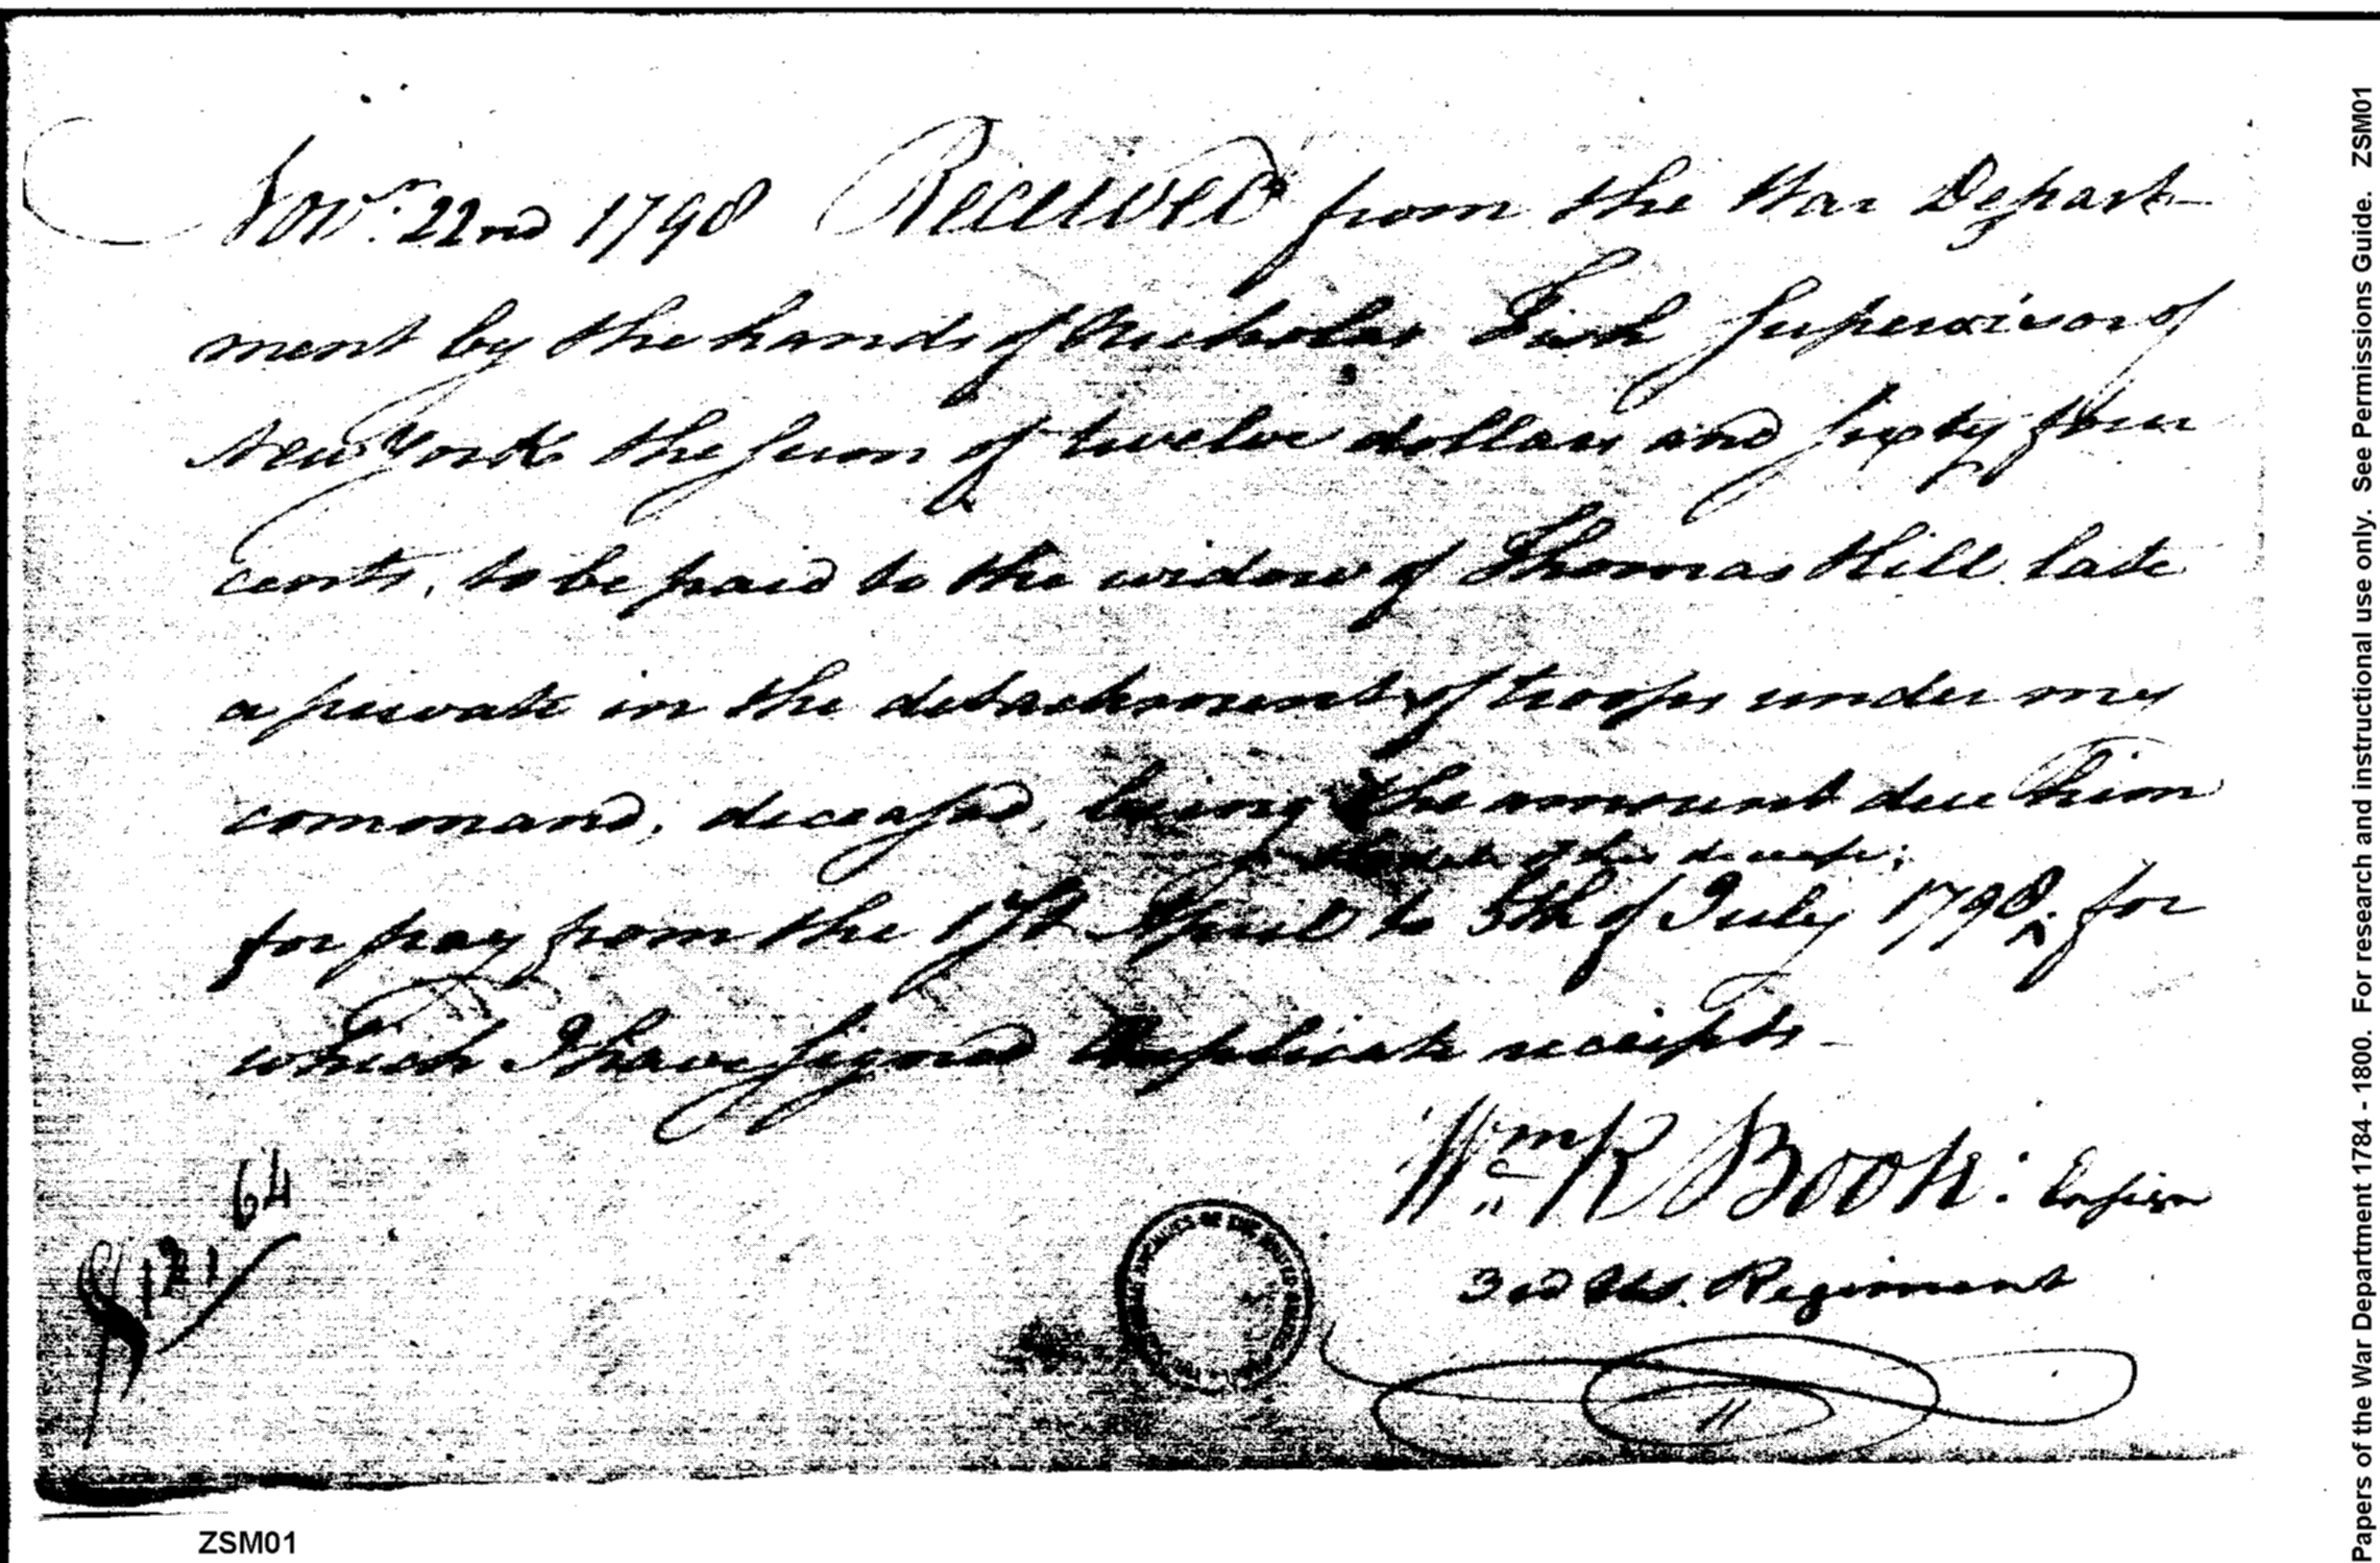 Novr. 22nd 1798 Received from the War Depart-
ment by the hands of Nicholas Fish Supervisor of
New York the sum of twelve dollars and sixty four
cents, to be paid to the widow of Thomas Hill late
a private in the detachment of troops under my
command, deceased, being the amount due him
the date of his decease;
for pay from the 1st April to 5th of July 1798, for
which I have signed duplicate receipts -
Wm R Book: Ensign
3rd Us. Regiment
$12 64
ZSM01
Papers of the War Department 1784 - 1800. For research and instructional use only. See Permissions Guide. ZSM01